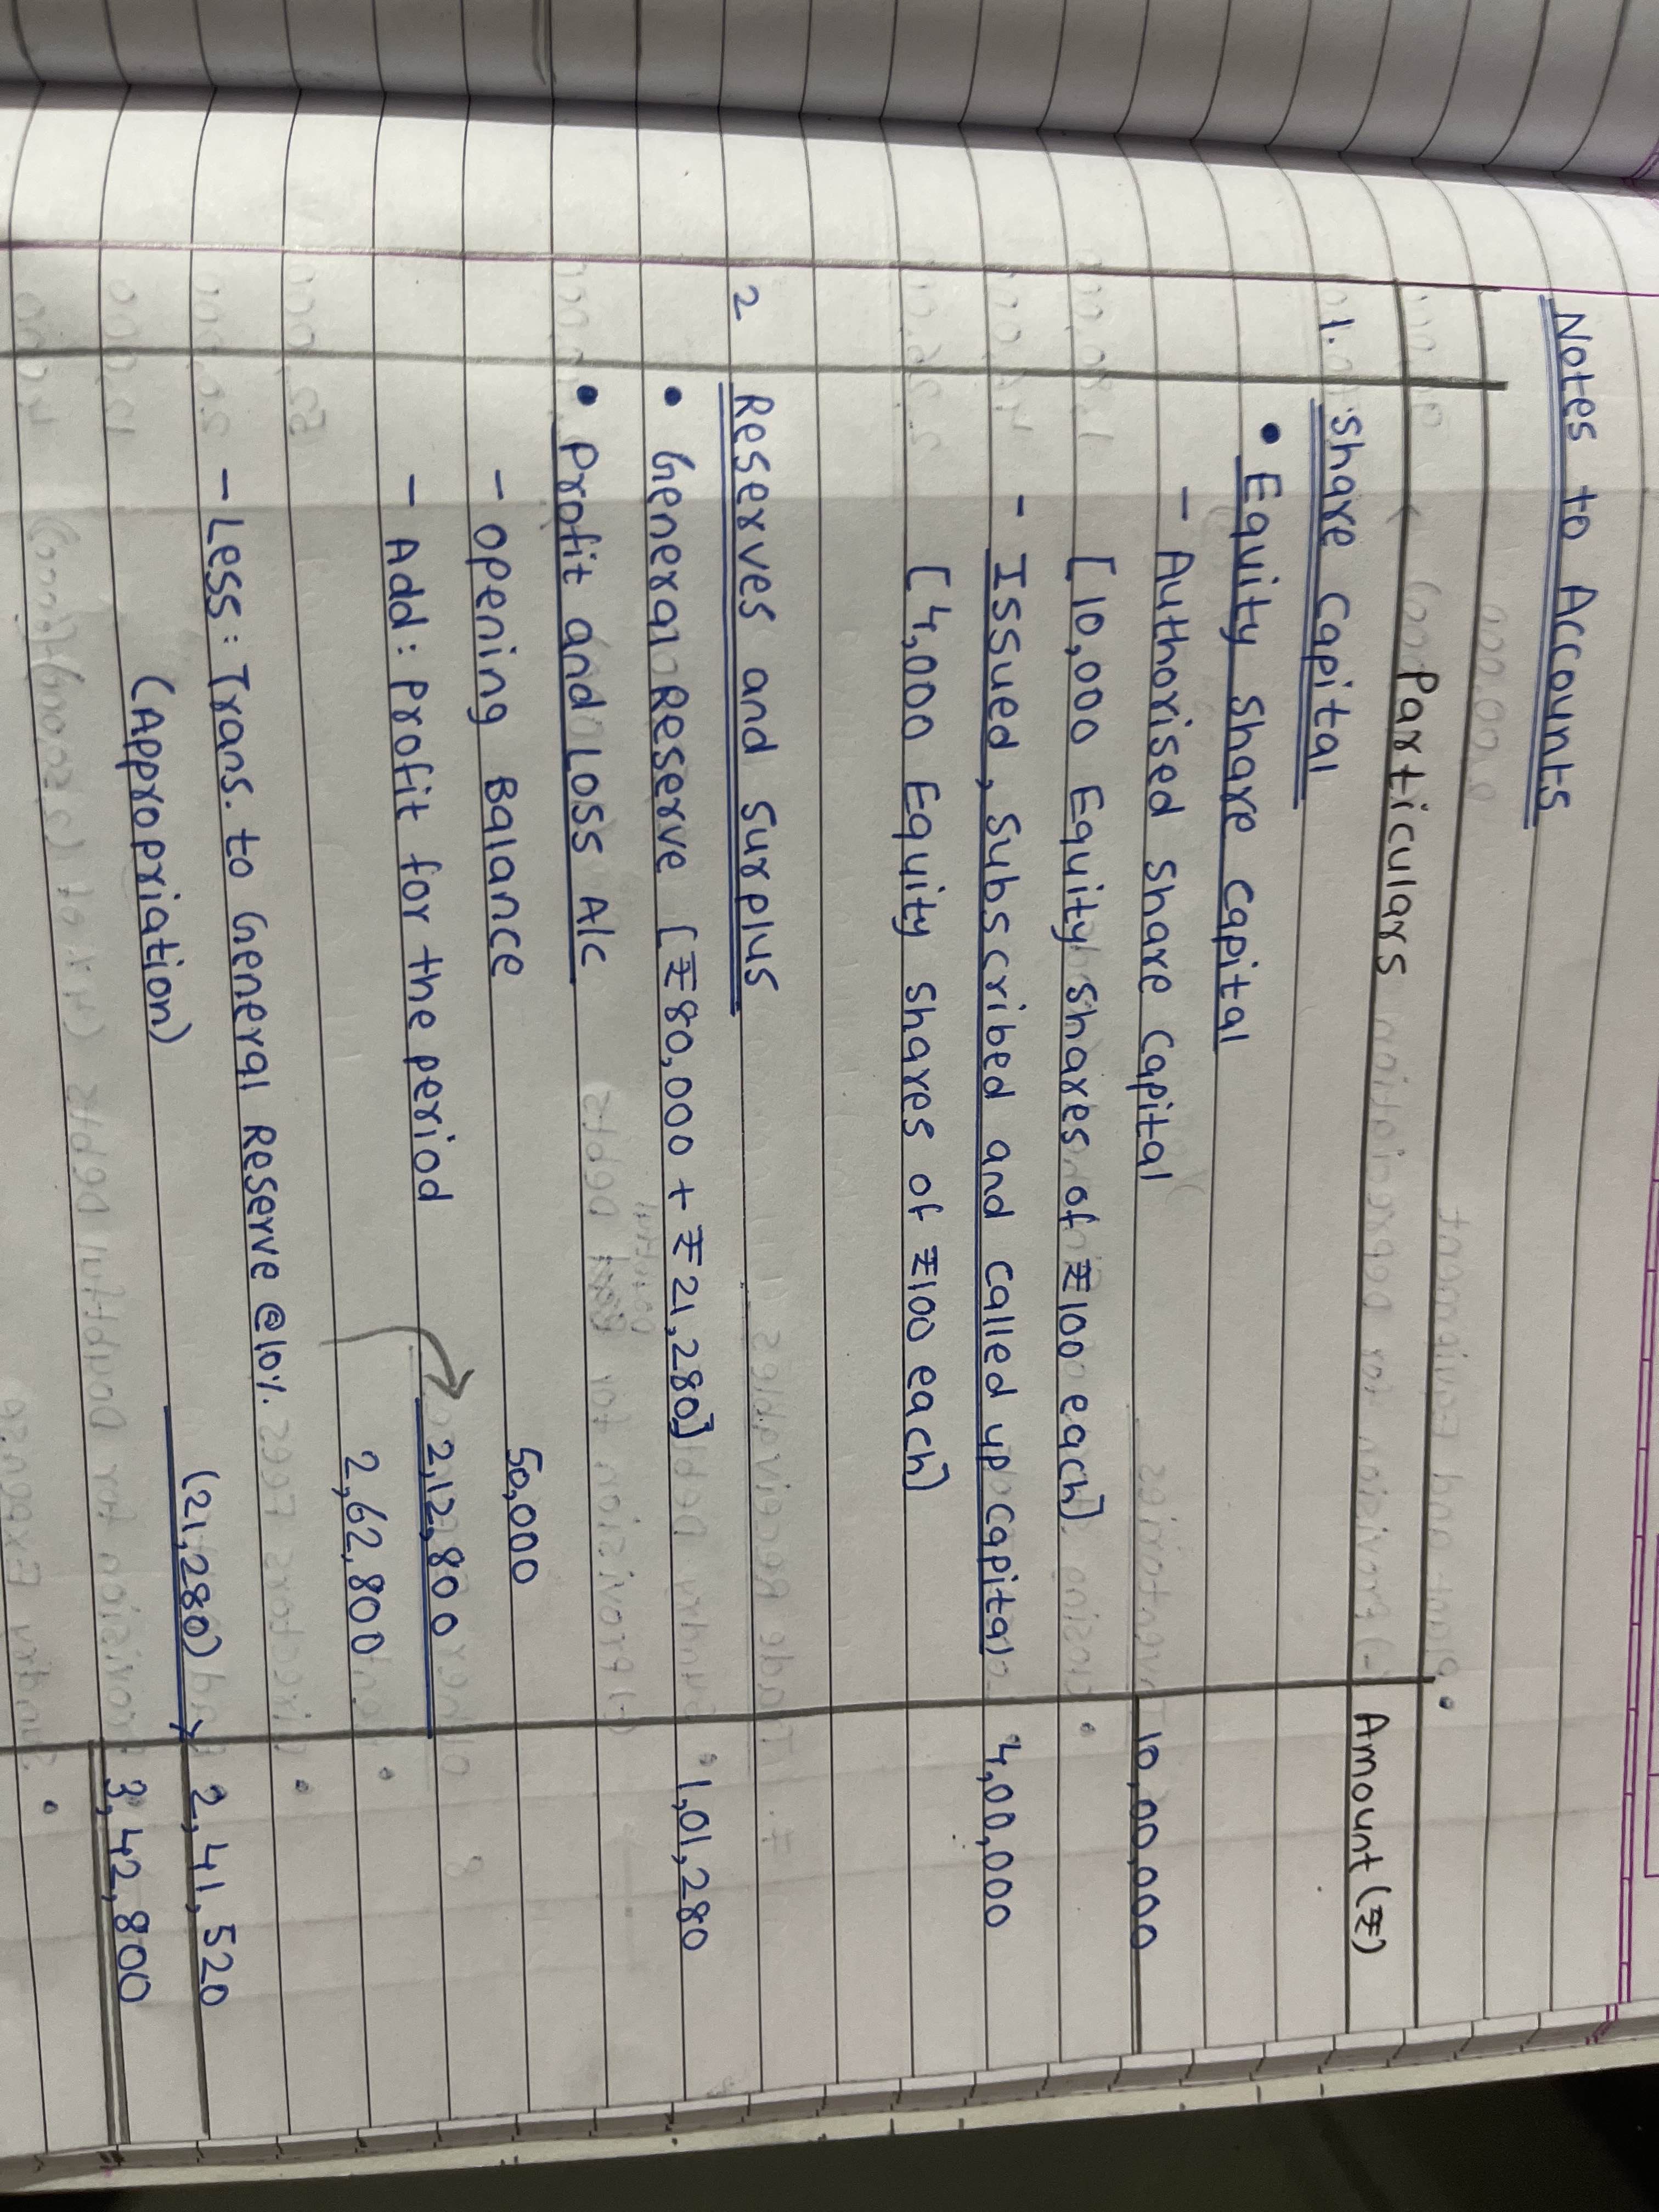 Notes to Accounts
Particulars Amount (₹)
1. Share Capital
• Equity Share Capital
- Authorised Share Capital 10,00,000
[10,000 Equity Shares of ₹100 each]
- Issued, Subscribed and Called up Capital 4,00,000
[4,000 Equity Shares of ₹100 each]
2 Reserves and Surplus
• General Reserve [₹80,000 + ₹21,280] 1,01,280
• Profit and Loss A/c
- Opening Balance 50,000
- Add: Profit for the period 2,12,800
2,62,800
- Less: Trans. to General Reserve @10%
(Appropriation) (21,280) 2,41,520
3,42,800